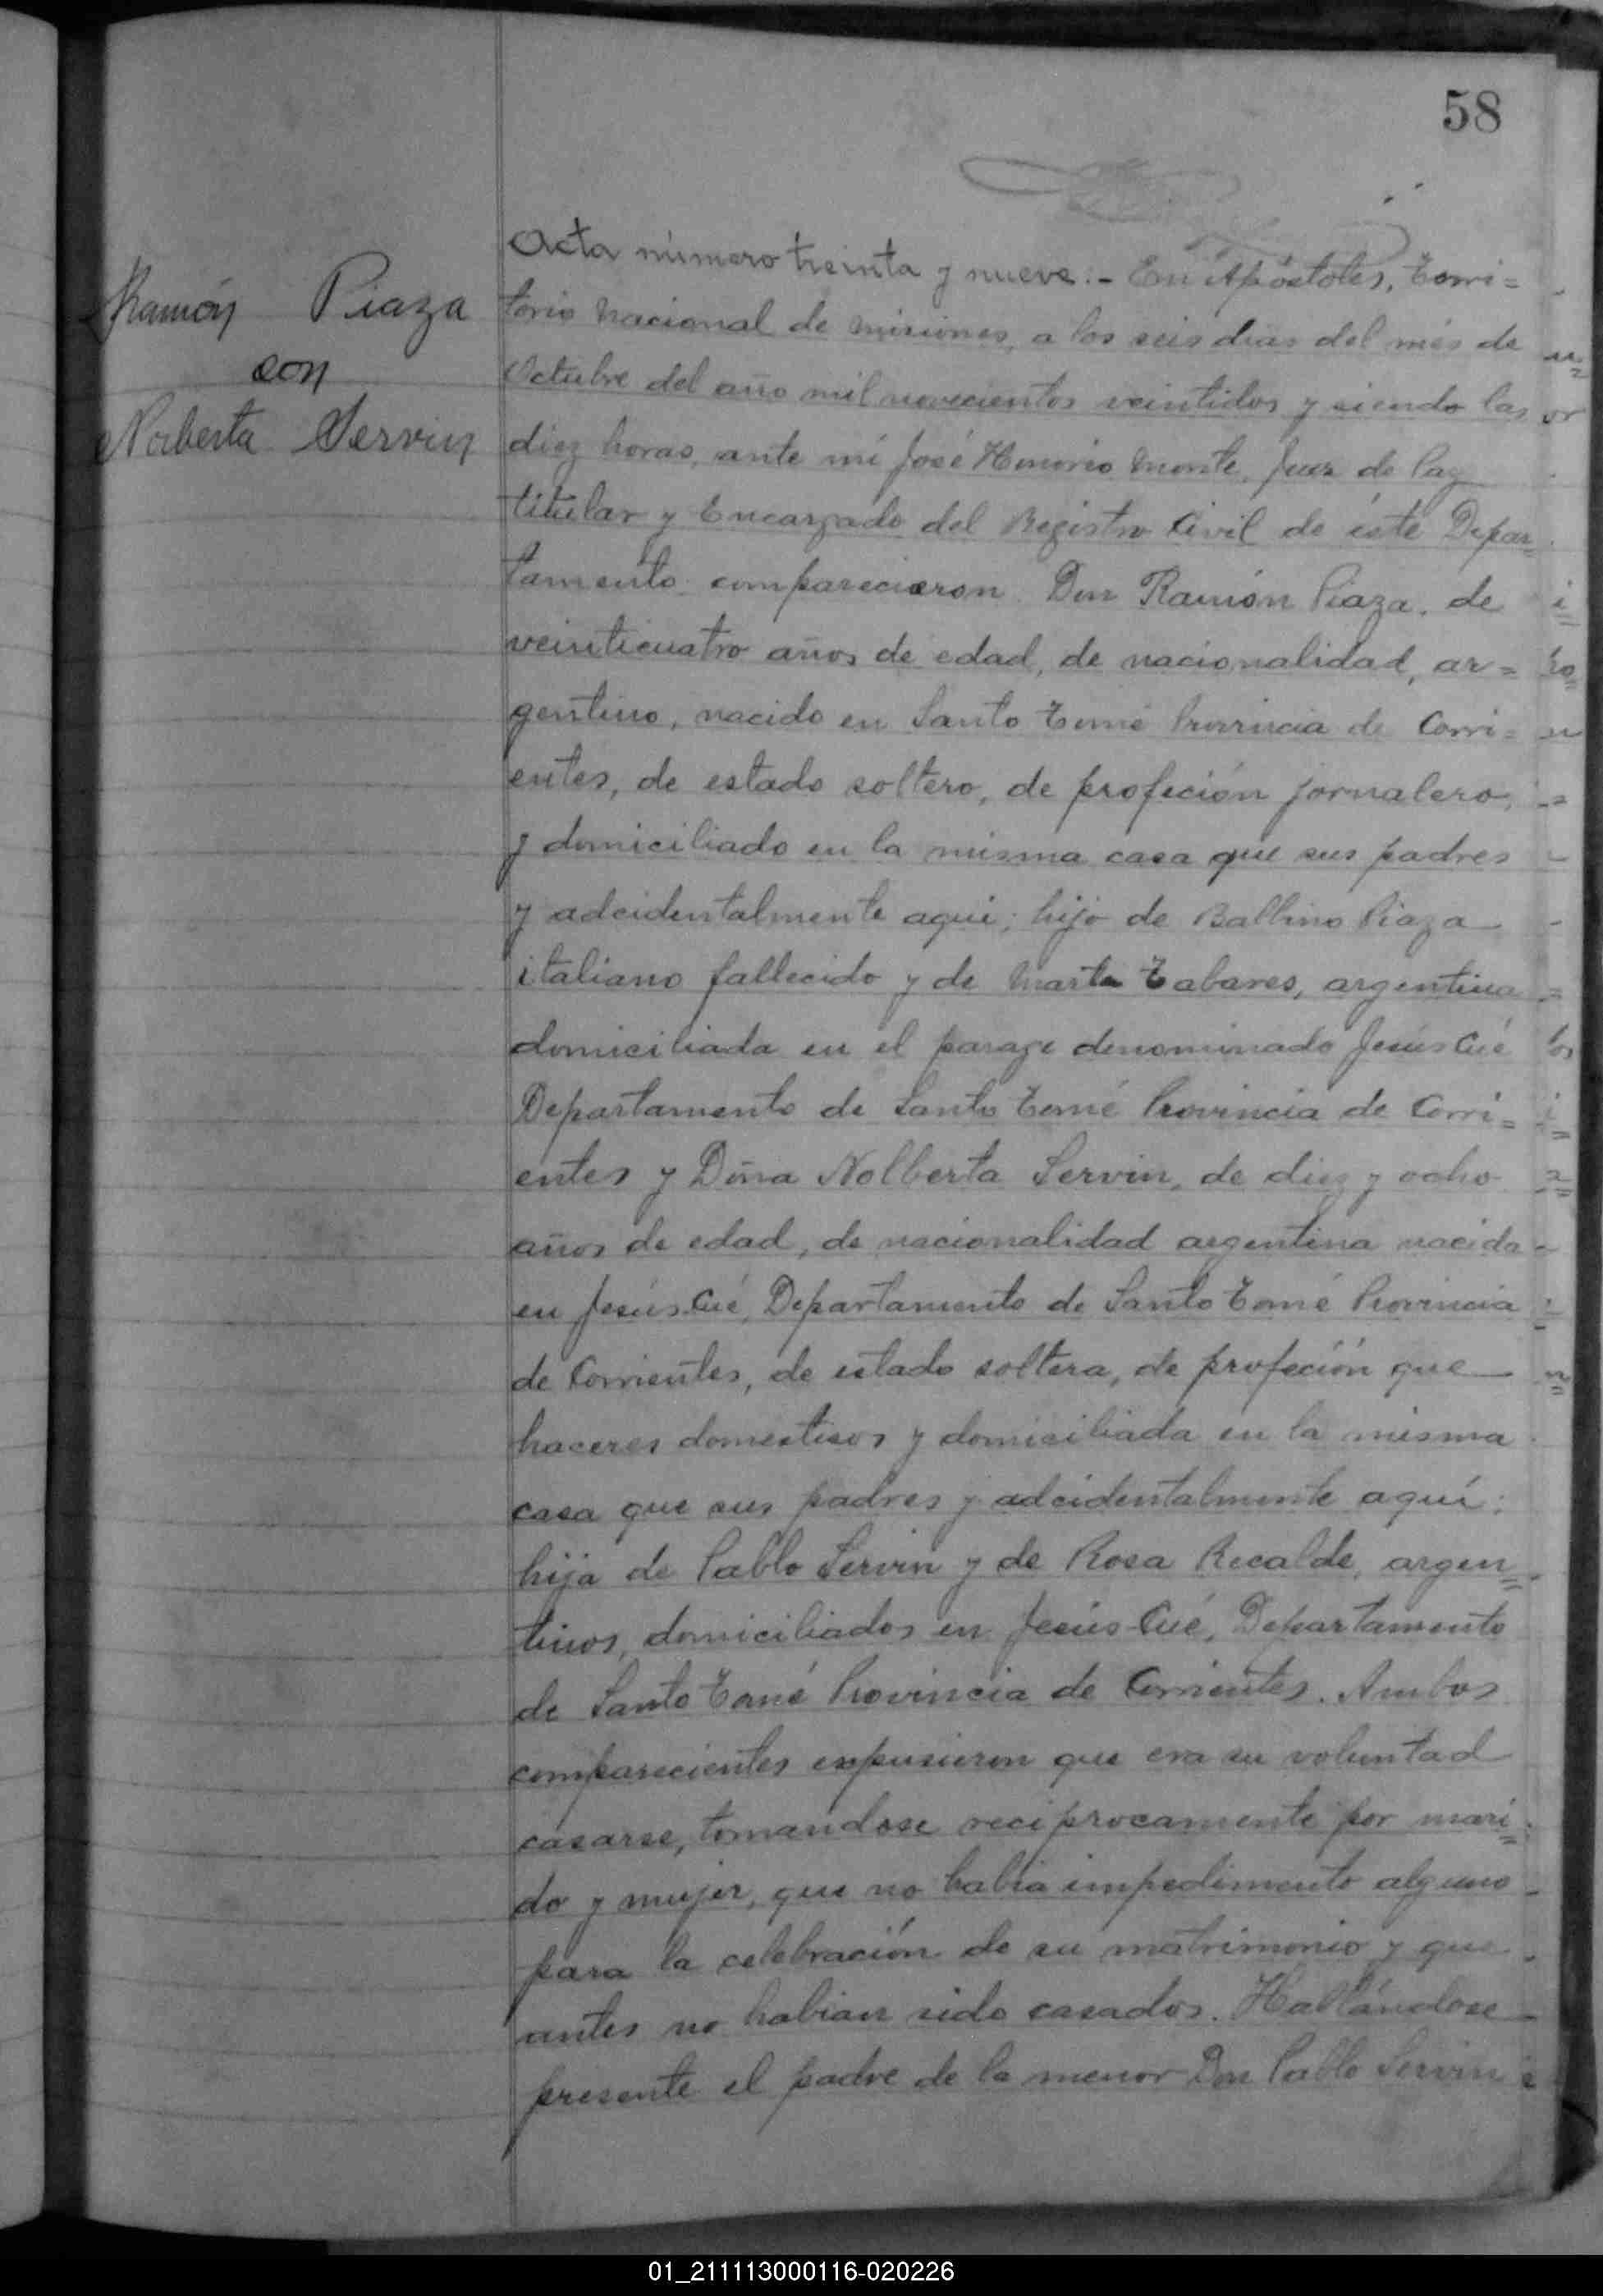 58
Ramón Piaza
con
Norberta Servin
Acta número treinta y nueve:- En Apóstoles, Terri=
torio Nacional de Misiones, a los seis dias del més de
Octubre del año mil novecientos veintidos y siendo las
diez horas, ante mi José Honorio Monte, Juez de Paz
titular y Encargado del Registro Civil de éste Depar=
tamento comparecieron Don Ramón Piaza, de
veinticuatro años de edad, de nacionalidad, ar=
gentino, nacido en Santo Tomé Provincia de Corri=
entes, de estado soltero, de profeción jornalero,
y domiciliado en la misma casa que sus padres
y adcidentalmente aqui; hijo de Balbino Piaza
italiano fallecido y de Marta Tabares, argentina
domiciliada en el parage denominado Jesús Cué
Departamento de Santo Tomé Provincia de Corri=
entes y Doña Nolberta Servin, de diez y ocho
años de edad, de nacionalidad argentina nacida
en Jesús Cué, Departamento de Santo Tomé Provincia
de Corrientes, de estado soltera, de profeción que
haceres domesticos y domiciliada en la misma
casa que sus padres y adcidentalmente aquí;
hija de Pablo Servin y de Rosa Recalde, argen=
tinos, domiciliados en Jesús Cué, Departamento
de Santo Tomé Provincia de Corrientes. Ambos
comparecientes expusieron que era su voluntad
casarse, tomandose reciprocamente por mari=
do y mujer, que no habia impedimento alguno
para la celebración de su matrimonio y que
antes no habian sido casados. Hallándose
presente el padre de la menor Don Pablo Servin
01_211113000116-020226